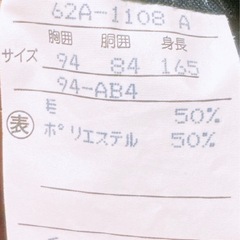 62A-1108 A
胸囲 胴囲 身長
サイズ 94 84 165
94-AB4
表 毛 50%
ポリエステル 50%